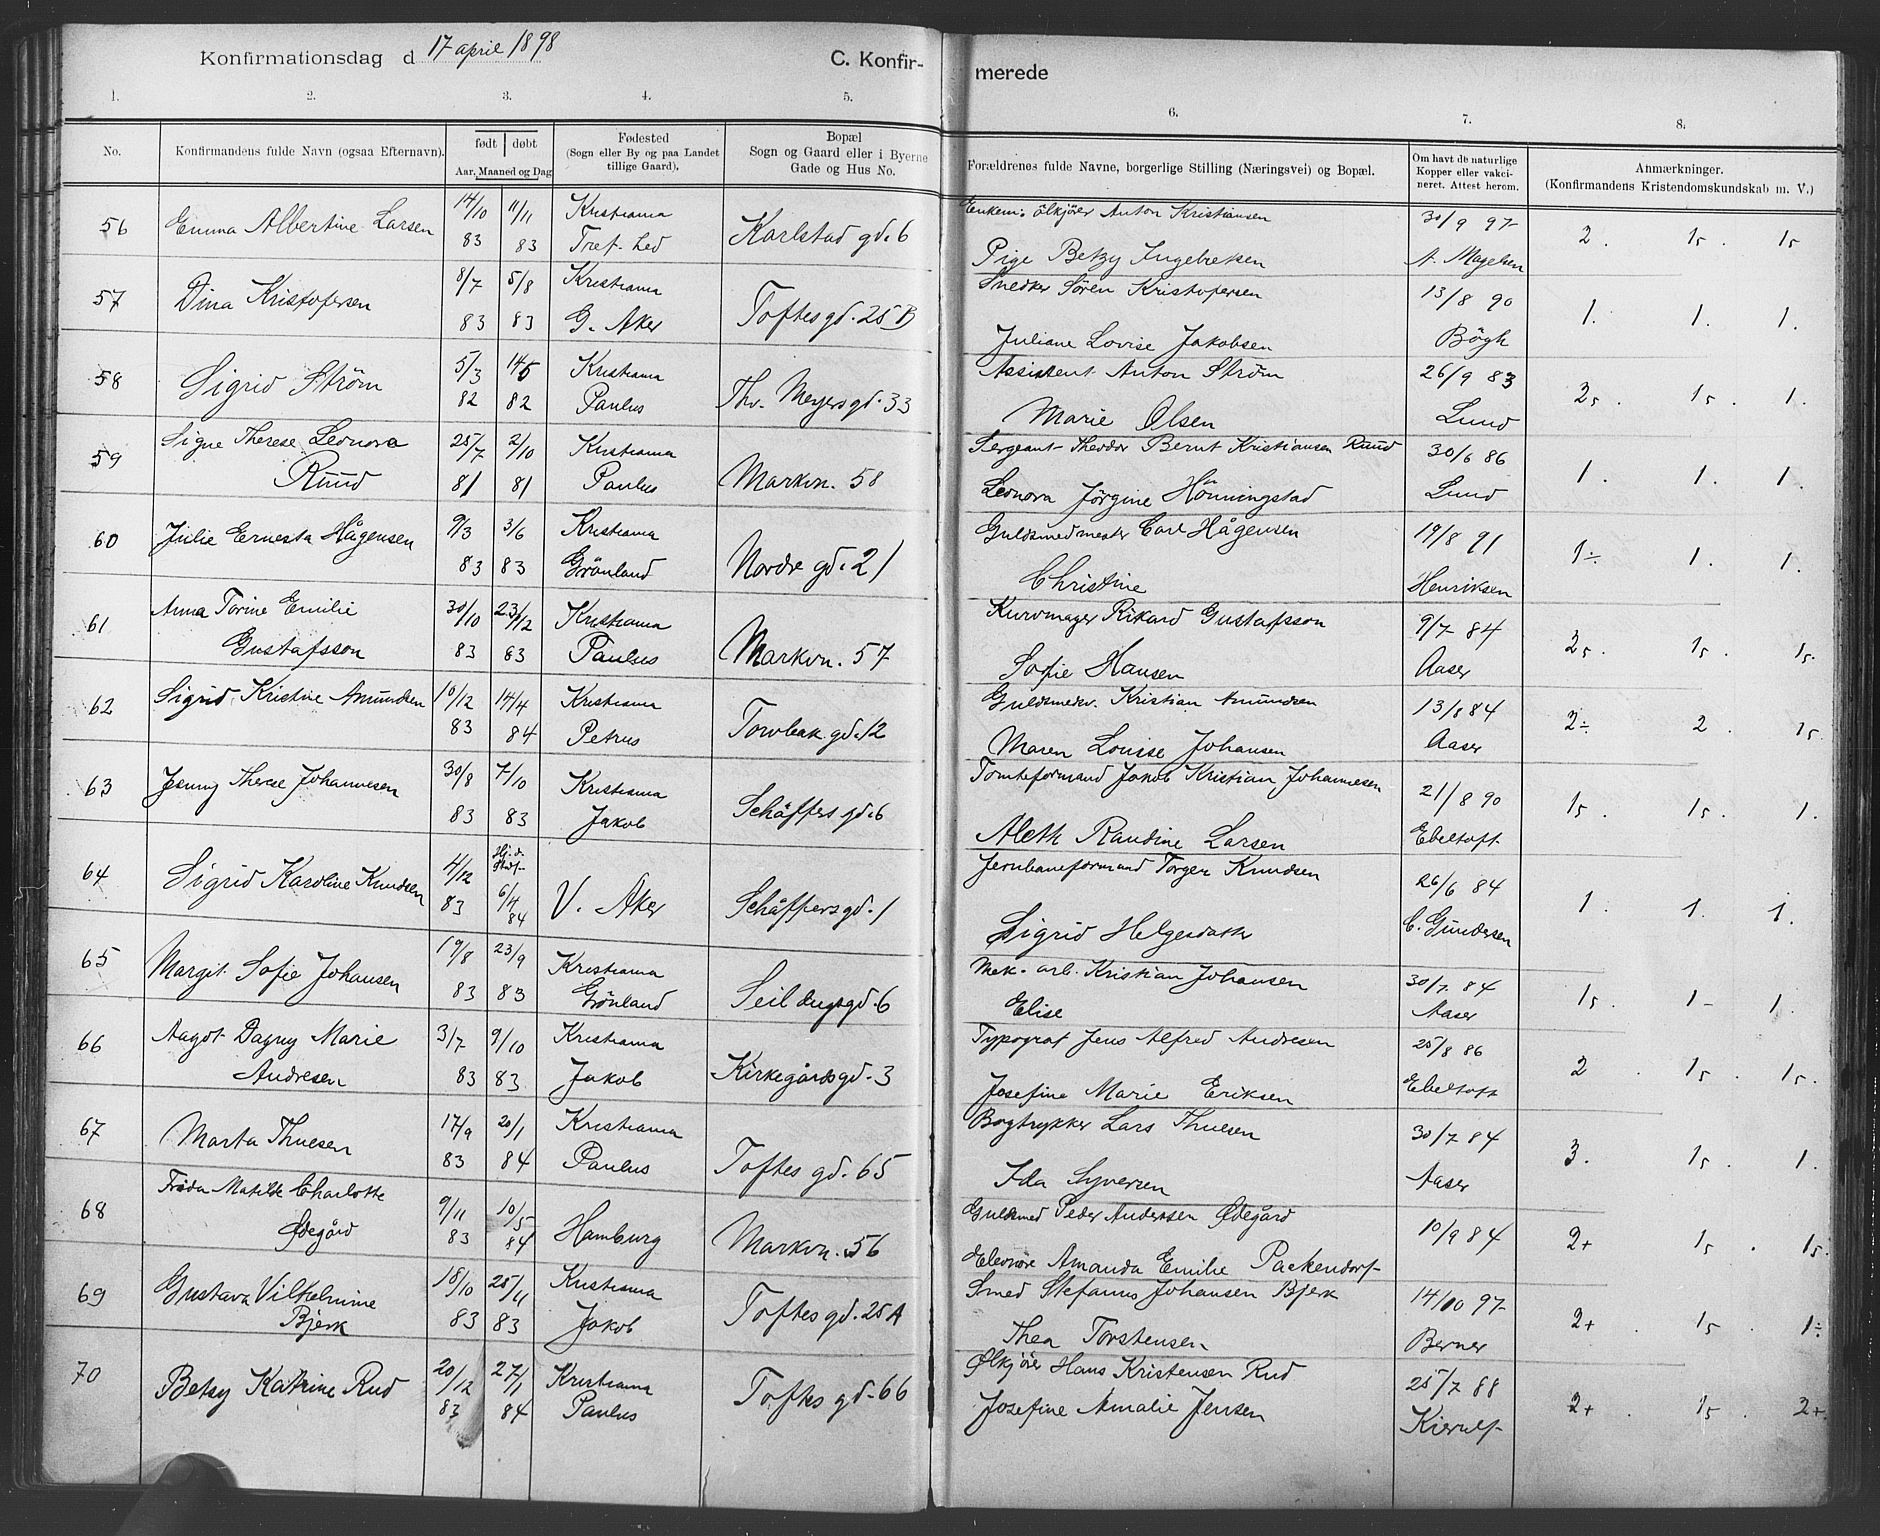 Konfirmationsdag d 17 april 1898
C. Konfirmerede
1. 2. 3. 4. 5. 6. 7. 8.
No.
Konfirmandens fulde Navn (ogsaa Efternavn).
født døbt
Aar, Maaned og Dag
Fødested
(Sogn eller By og paa Landet
tillige Gaard).
Bopæl
Sogn og Gaard eller i Byerne
Gade og Hus No.
Forældrenes fulde Navne, borgerlige Stilling (Næringsvei) og Bopæl.
Om havt de naturlige
Kopper eller vakci-
neret. Attest herom.
Anmærkninger.
(Konfirmandens Kristendomskundskab m. V.)
56 Emma Albertine Larsen 14/10 83 11/11 83 Kristiania Karlstad gd. 6 Anton Kristiansen 30/9 97
Pige Betzy Ingebretsen 2. 15. 15
57 Dina Kristofersen 8/7 83 5/8 83 Kristiania G. Aker Toftes gd. 25 B Snedker Sören Kristofersen 13/8 90
Juliane Lovise Jakobsen Bögh 1. 1. 1.
58 Sigrid Ström 5/3 82 14/5 82 Kristiania Paulus Thv. Meyers gd. 33 Assistent Anton Ström 26/9 83
Marie Olsen Lund 25. 15. 1.
59 Signe Therese Leonora Ruud 25/7 81 2/10 81 Kristiania Paulus Markvn. 58 Sergeant Theodor Bernt Kristiansen Ruud 30/6 86
Leonora Jörgine Hönningstad Lund 1. 1. 1.
60 Julie Ernesta Hågensen 9/3 83 3/6 83 Kristiania Grönland Nordre gd. 21 Guldsmedmester Carl Hågensen 19/8 91
Christine Henriksen 1÷ 1. 1.
61 Anna Torine Emilie Gustafsson 30/10 83 23/12 83 Kristiania Paulus Markvn. 57 Kurvmager Rikard Gustafsson 9/7 84
Sofie Hansen Aaser 25. 15. 15.
62 Sigrid Kristine Amundsen 10/12 83 14/4 84 Kristiania Petrus Torvbak gd. 12 Guldsmedsv. Kristian Amundsen 13/8 84
Maren Louise Johansen Aaser 2÷ 2. 15
63 Jenny Therese Johannesen 30/8 83 7/10 83 Kristiania Jakob Schäffers gd. 6 Tomteformand Jakob Kristian Johannesen 21/8 90
Aleth Randine Larsen Ebeltoft 15. 15. 1.
64 Sigrid Karoline Knudsen 4/12 83 Hj. d. Stadf. 6/4 84 V. Aker Schäffers gd. 1 Jernbaneformand Torger Knudsen 26/6 84
Sigrid Helgesdatter C. Gundersen 1. 1. 1.
65 Margit Sofie Johansen 19/8 83 23/9 83 Kristiania Grönland Seildugsgd. 6 Mek. arb. Kristian Johansen 30/7 84
Elise Aaser 15. 1- 1.
66 Aagot Dagny Marie Andresen 3/7 83 9/10 83 Kristiania Jakob Kirkegårdsgd. 3 Typograf Jens Alfred Andresen 25/8 86
Josefine Marie Eriksen Ebeltoft 2. 15. 15.
67 Marta Thuesen 17/9 83 20/1 84 Kristiania Paulus Toftes gd. 65 Bogtrykker Lars Thuesen 30/7 84
Ida Syversen Aaser 3. 15. 1.
68 Frida Matilde Charlotte Ødegård 9/11 83 10/5 84 Hamburg Markvn. 56 Guldsmed Peder Andersen Ødegård 10/9 84
Eleonore Amanda Emilie Packendorf 2+ 15. 15.
69 Gustava Vilhelmine Bjerk 18/10 83 25/11 83 Kristiania Jakob Toftes gd. 25 A Smed Stefanus Johansen Bjerk 14/10 97
Thea Torstensen Berner 2+. 15. 1÷
70 Betsy Katrine Rud 20/12 83 27/1 84 Kristiania Paulus Toftes gd. 66 Ølkjöer Hans Kristensen Rud 25/7 88
Josefine Amalie Jensen Kierulf 2+. 15. 2+.